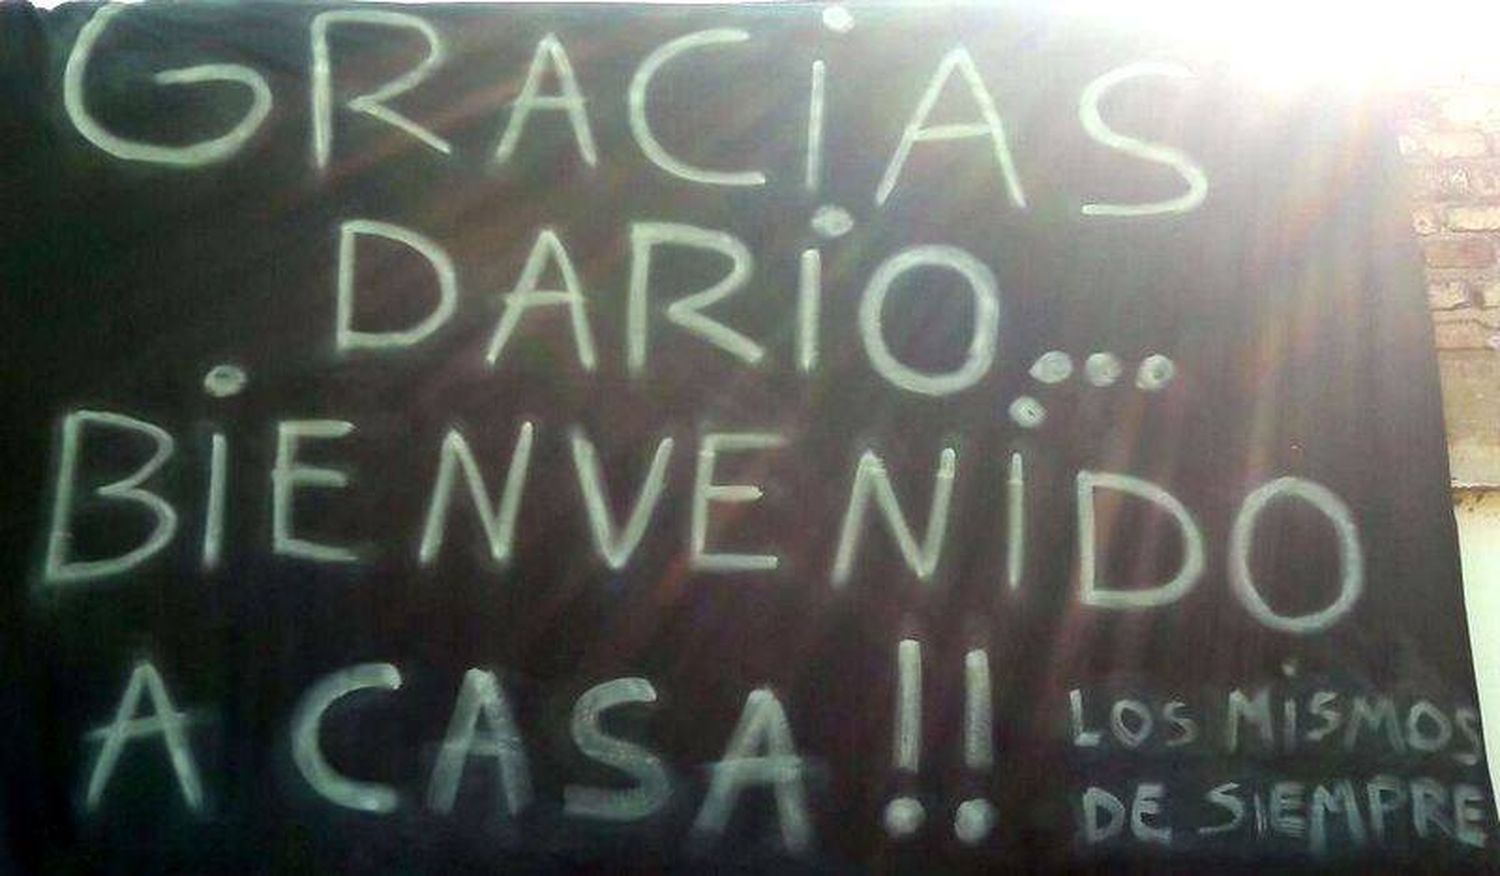 GRACiAS
DARiO...
BiENVENiDO
A CASA!!
LOS MiSMOS
DE SiEMPRE